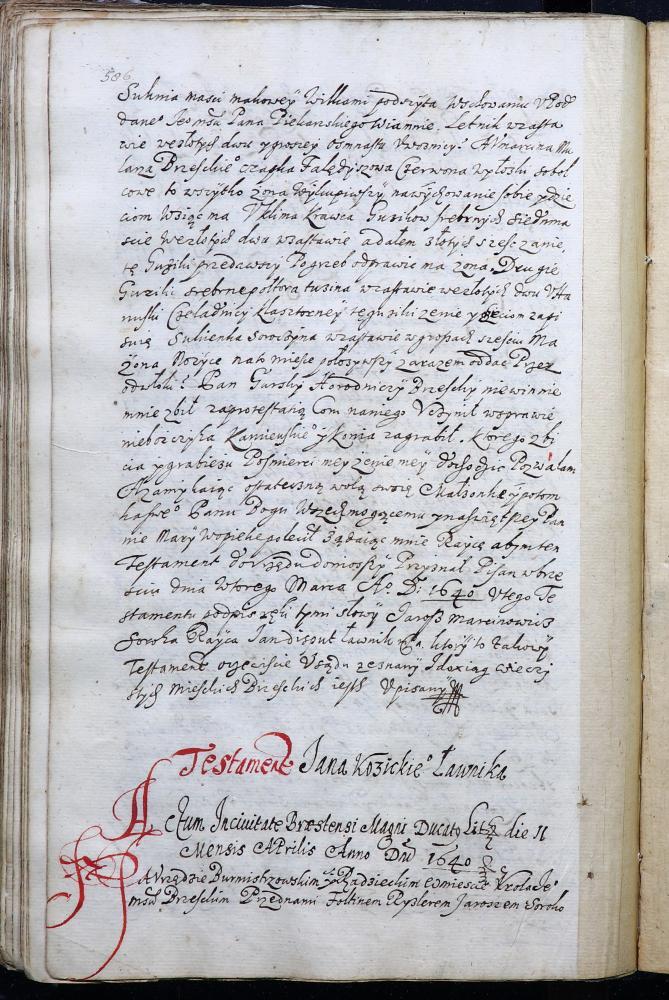 586
Suknia masci makowey Wilkami podszyta Wschowaniu U Pod
dane° Jeo msci Pana Piekarskiego Wiannie. Letnik wzasta
wie wezlotych dwu y groszey osmnastu Uwoznicy. A Marcina Mu
larza Brzeskie° czapka Falędyszowa Czerwona wyłoski sobol
cowe to wszytko żona Wykupiwszy na wychowanie sobie ydzie
ciom Wziąc ma Uklima Krawca Guzikow srebrnych siedmna
scie Wezlotych dwa wzastawie a dałem złotych szesc zanie,
tę Guziki przedawszy Pogrzeb odprawic ma zona, Drugie
Guziki srebrne połtora tuzina wzastawie wezlotych dwu U Ha
nuski Czeladnicy klasztorney tę guziki zenie y dzieciom zapi
suię Sukienka wzastawie w groszach szesciu Ma
żona Pozyce na to miese zarazem oddac Przez
Pan Gurski Horodniczy Brzesky niewinnie
mnie zbił zaprotestacią Com naniego Uczynił wsprawie
nieboszczyka Kamieńskie° y konia zagrabił, ktorego zbi
cia y grabiezu Posmierci mey zenie mey dochodzic Pozwalam
A zamykaiąc ostateczną wolą swoię Małzonkę y potom
Panu Bogu Wszechmogącemu y naswiętszey Pan
nie Mary Wopiekę polecił Ządaiąc mnie Raycę abym ten
Testament do Urzędu doniosszy Przyznał Pisan w brze
sciu Dnia Wtorego Marca A° D: 1640 U tego Te
stamentu podpis ręki tymi słowy Jarosz Marcinowicz
Soroka Rayca Jan Ławnik ktory to takowy
Testament oczewiscie Urzędu zeznany Do xiąg wieczy
stych Mieskich Brzeskich iest Upisany
Testament Jana Kozickie° Ławnika
Actum Incivitate Bræstensi Magni Ducatq Lit die 11
Mensis Aprilis Anno Dni 1640
Na Urzędzie Burmistrzowskim y Radzieckim Wmiescie Krola Je°
msci Brzeskim Przednami Foltinem Ryslerem Jaroszem Soroko